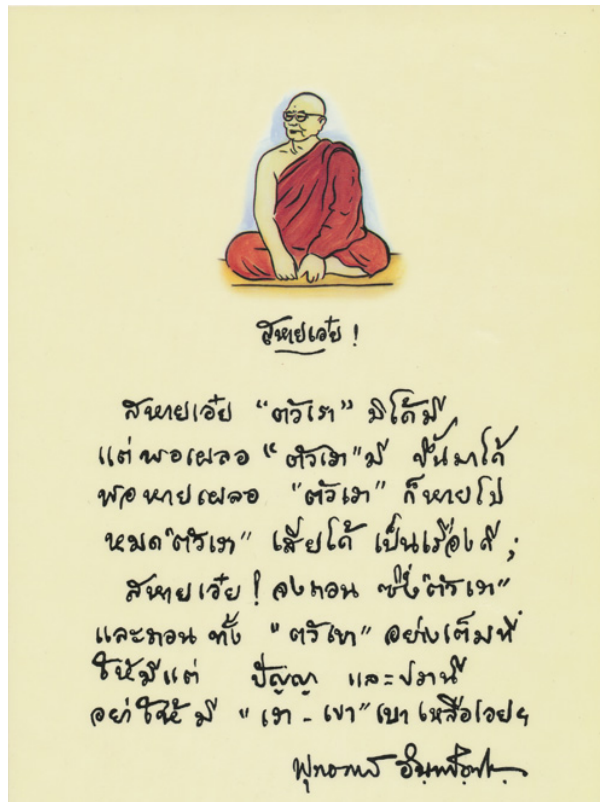 สหายเอ๋ย !
สหายเอ๋ย “ตัวเรา” มิได้มี
แต่พอเผลอ “ตัวเรา” มี ขึ้นมาได้
พอหายเผลอ “ตัวเรา” ก็หายไป
หมด “ตัวเรา” เสียได้ เป็นเรื่องดี ;
สหายเอ๋ย ! จงถอน ซึ่ง “ตัวเรา”
และถอน ทั้ง “ตัวเขา” อย่างเต็มที่
ให้มีแต่ ปัญญา และปรานี
อย่าให้ มี “เรา - เขา” เบาเหลือเอยฯ
พุทธทาส อินฺทปญฺโญ